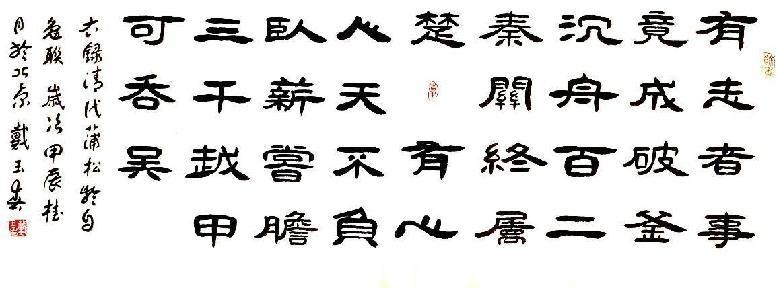 有志者事
竟成破釜
沉舟百二
秦關終屬
楚有心
人天不負
臥薪嘗膽
三千越甲
可吞吳
右録清代蒲松齡自
勉聯 歲次甲辰桂
月於北京 戴玉